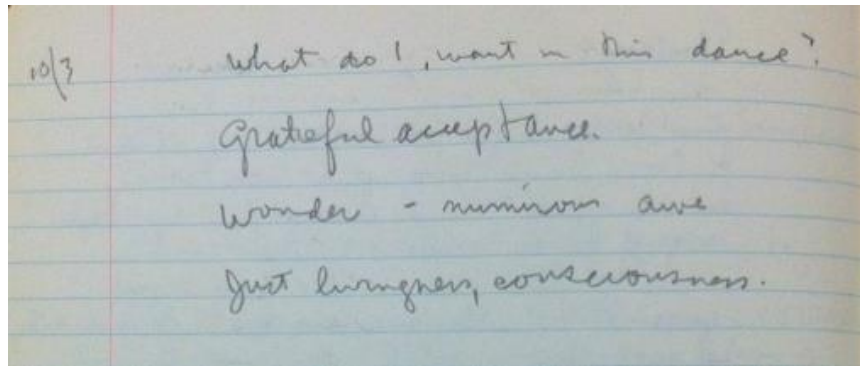 10/3 What do I, want in this dance?
Grateful acceptance.
Wonder - numinous awe
Just livingness, consciousness.